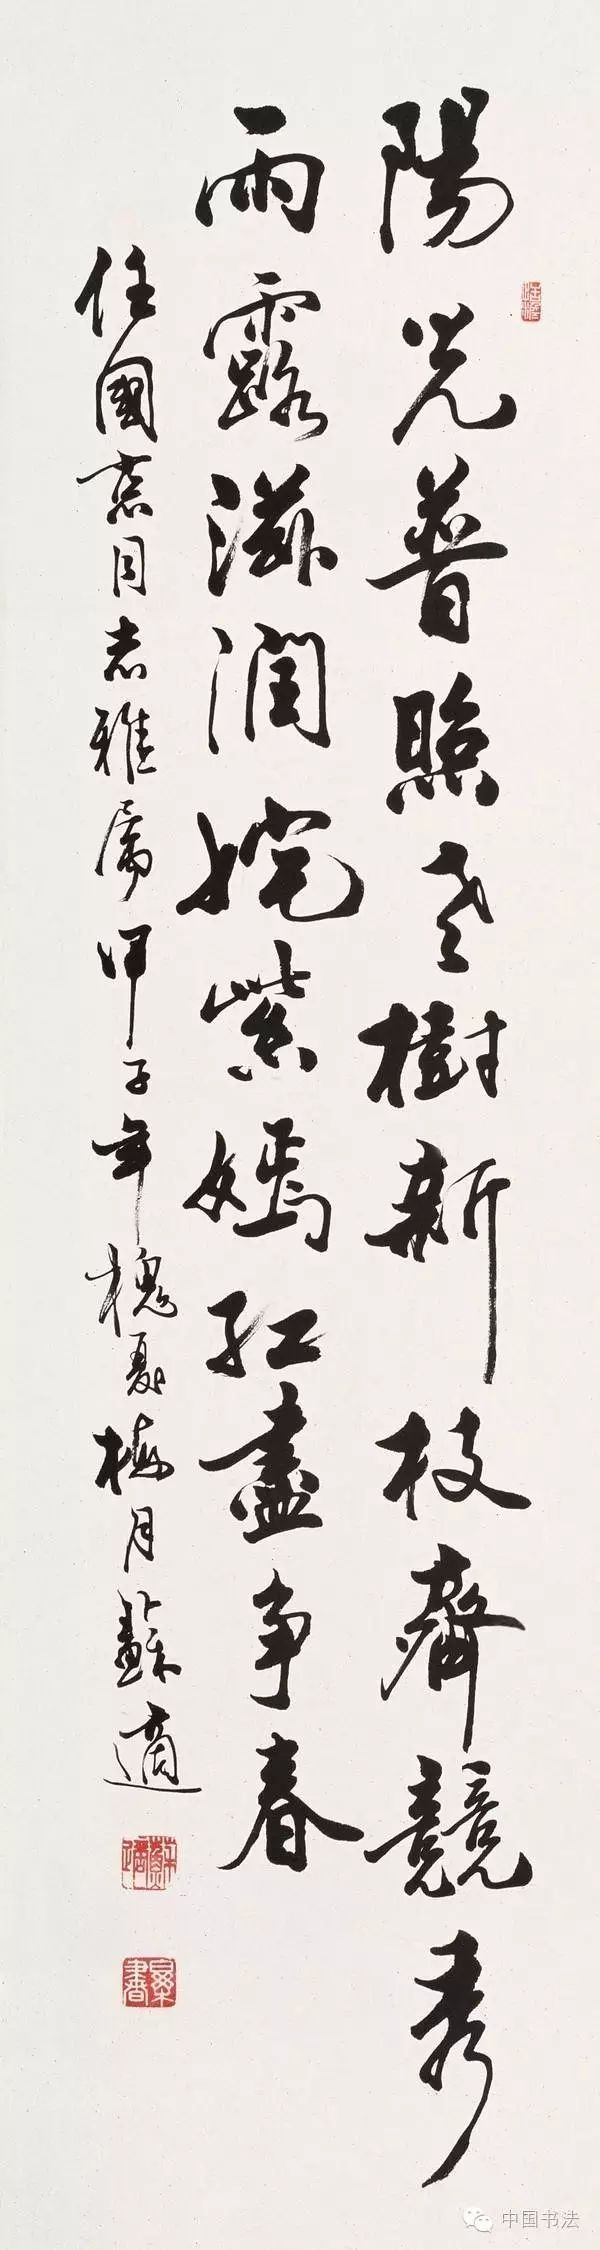 陽光普照老樹新枝齊競秀
雨露滋潤姹紫嫣紅盡争春
任國志同志雅屬甲子年槐夏梅月蘇適
中国书法